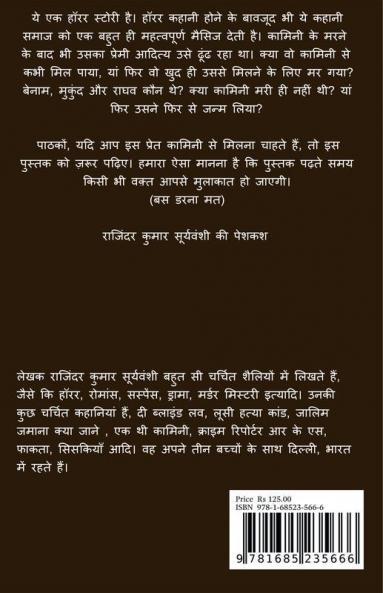 ये एक हॉरर स्टोरी है। हॉरर कहानी होने के बावजूद भी ये कहानी
समाज को एक बहुत ही महत्वपूर्ण मैसिज देती है। कामिनी के मरने
के बाद भी उसका प्रेमी आदित्य उसे ढूंढ रहा था। क्या वो कामिनी से
कभी मिल पाया, यां फिर वो खुद ही उससे मिलने के लिए मर गया?
बेनाम, मुकुंद और राघव कौन थे? क्या कामिनी मरी ही नहीं थी? यां
फिर उसने फिर से जन्म लिया?
पाठकों, यदि आप इस प्रेत कामिनी से मिलना चाहते हैं, तो इस
पुस्तक को ज़रूर पढ़िए। हमारा ऐसा मानना है कि पुस्तक पढ़ते समय
किसी भी वक्त आपसे मुलाकात हो जाएगी।
(बस डरना मत)
राजिंदर कुमार सूर्यवंशी की पेशकश
लेखक राजिंदर कुमार सूर्यवंशी बहुत सी चर्चित शैलियों में लिखते हैं,
जैसे कि हॉरर, रोमांस, सस्पेंस, ड्रामा, मर्डर मिस्टरी इत्यादि। उनकी
कुछ चर्चित कहानियां हैं, दी ब्लाइंड लव, लूसी हत्या कांड, जालिम
जमाना क्या जाने , एक थी कामिनी, क्राइम रिपोर्टर आर के एस,
फाकता, सिसकियाँ आदि। वह अपने तीन बच्चों के साथ दिल्ली, भारत
में रहते हैं।
Price Rs 125.00
ISBN 978-1-68523-566-6
9 781685 235666